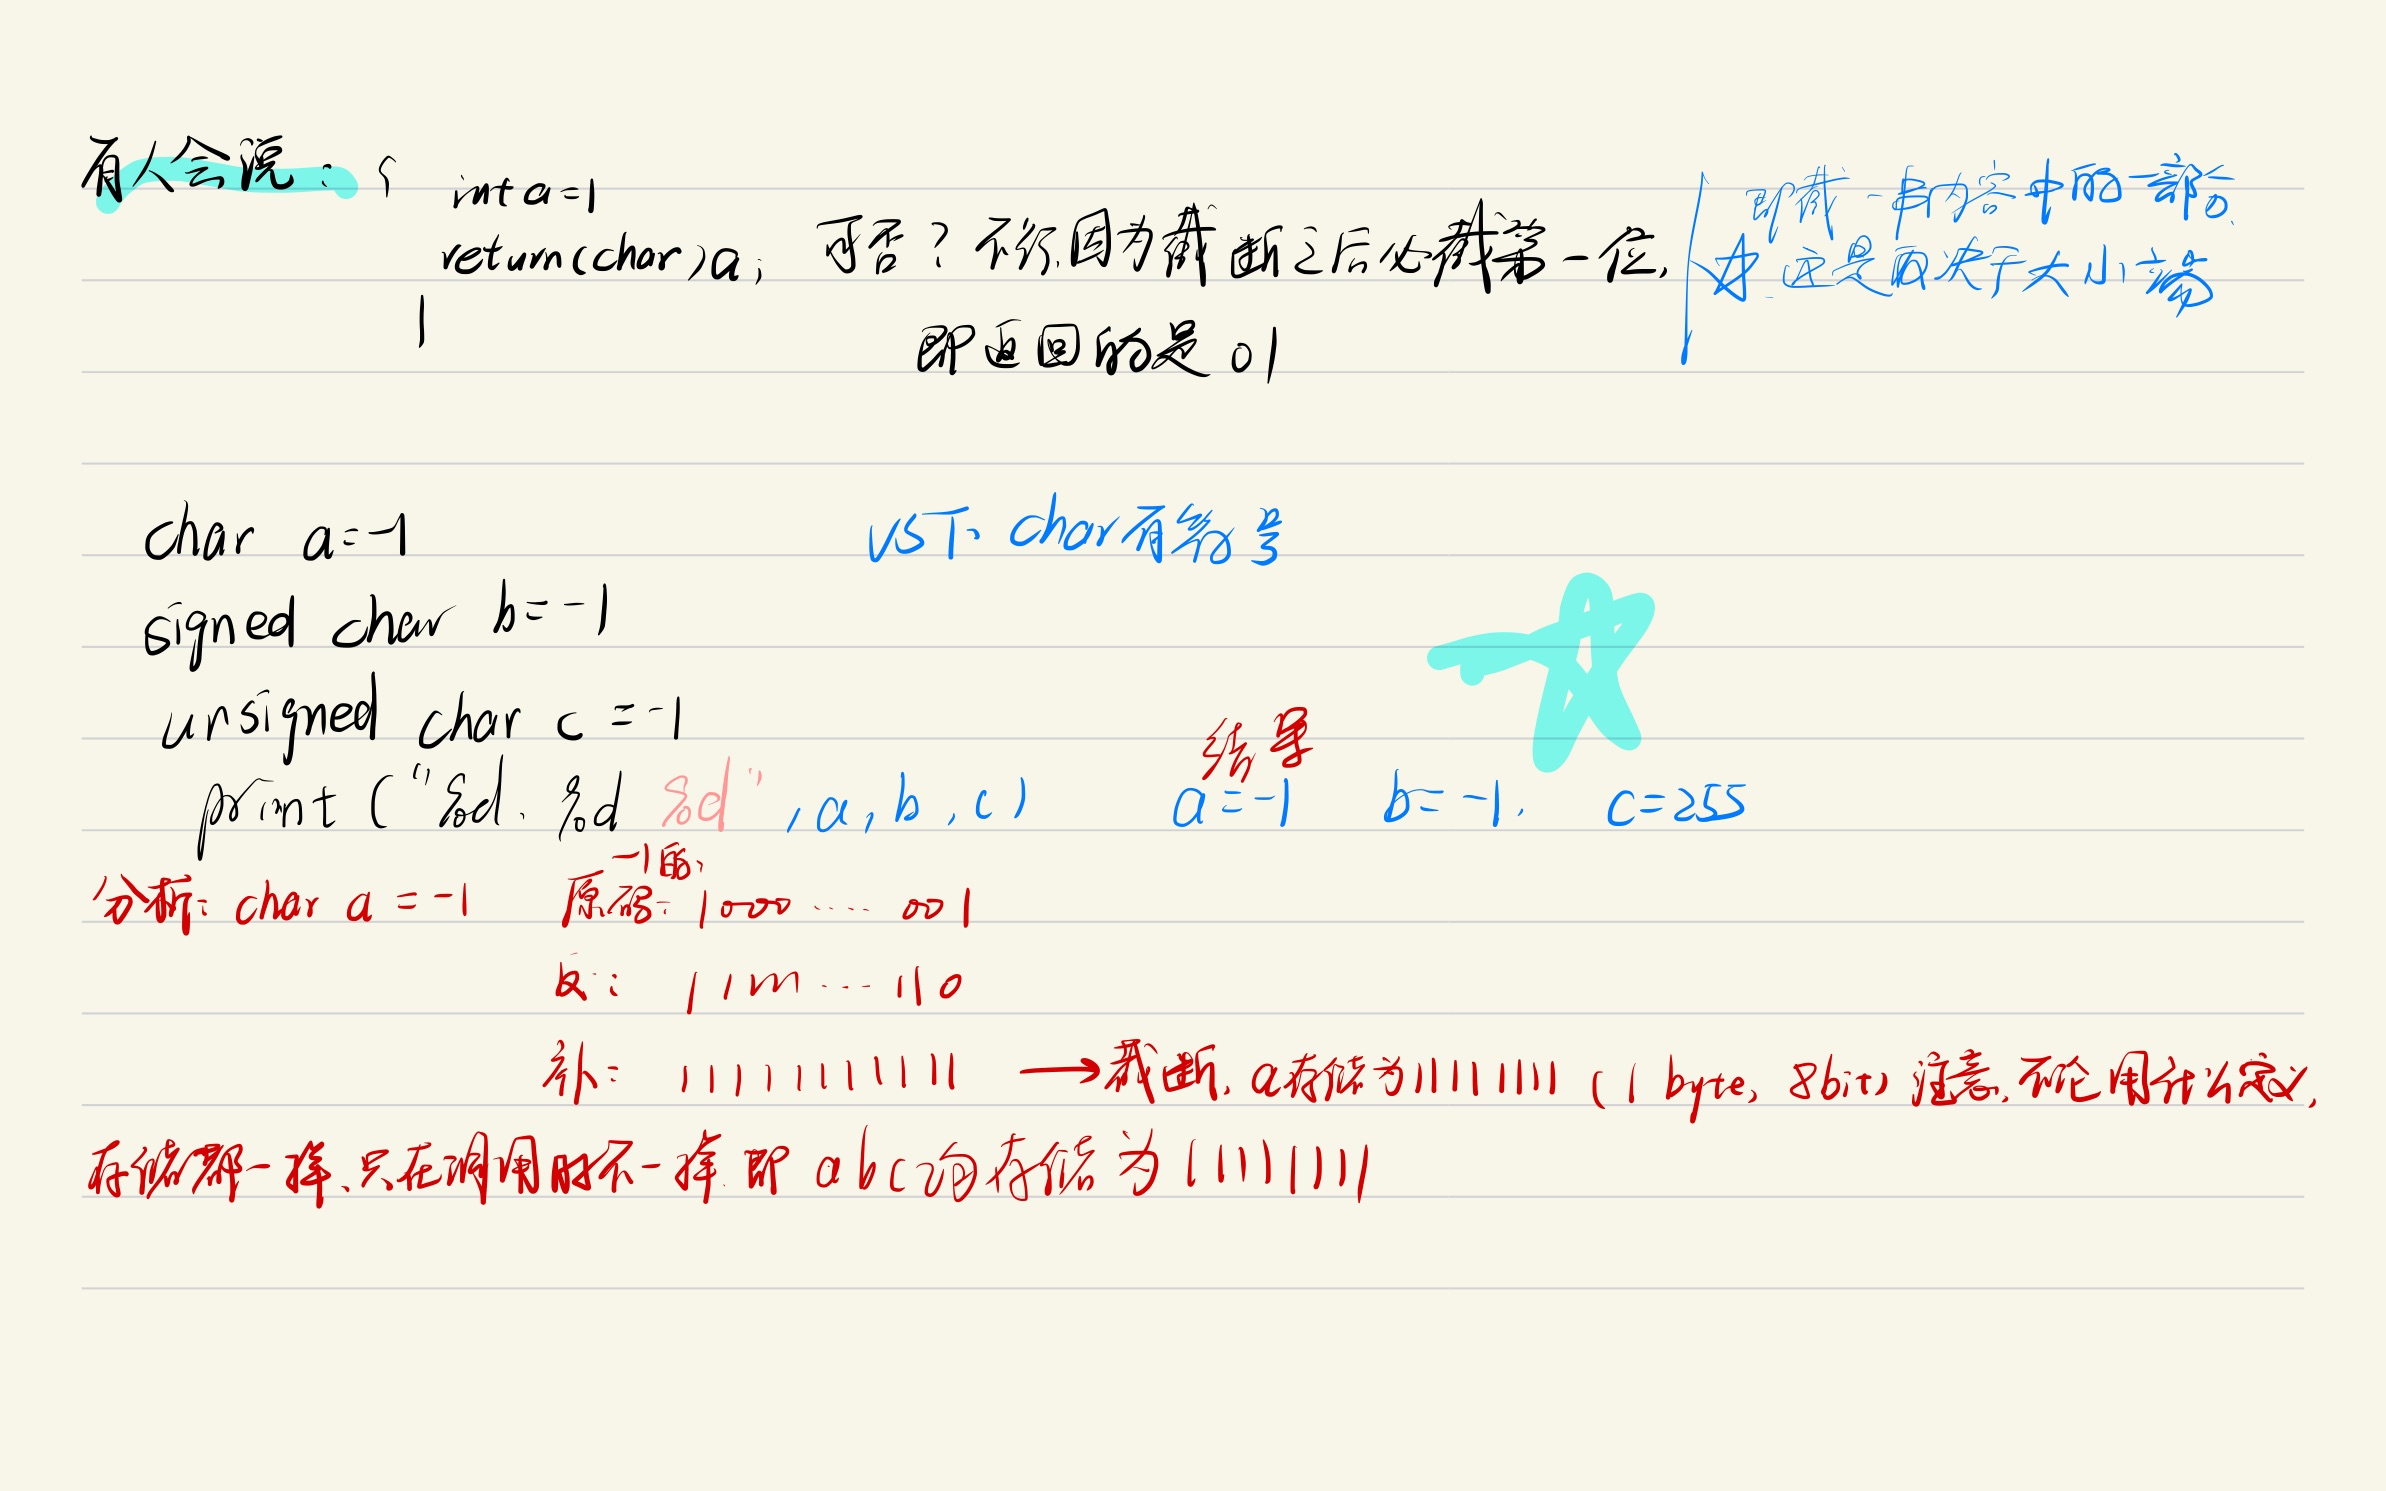 有人会说：{
int a=1
return(char)a;
}
可否？不行，因为截断之后必截第一位，
即返回的是 01
即截一串内容中的一部分
还是取决于大小端
char a=-1
VS下 char有符号
signed char b=-1
unsigned char c=-1
结果
print("%d. %d %d", a, b, c) a=-1 b=-1, c=255
-1的:
分析: char a=-1 原码: 1000……001
反: 1111…110
补: 11111111111 → 截断, a存储为11111111 (1 byte, 8bit) 注意, 不论用什么定义,
存储都一样、只在调用时不一样. 即 abc均存储为11111111